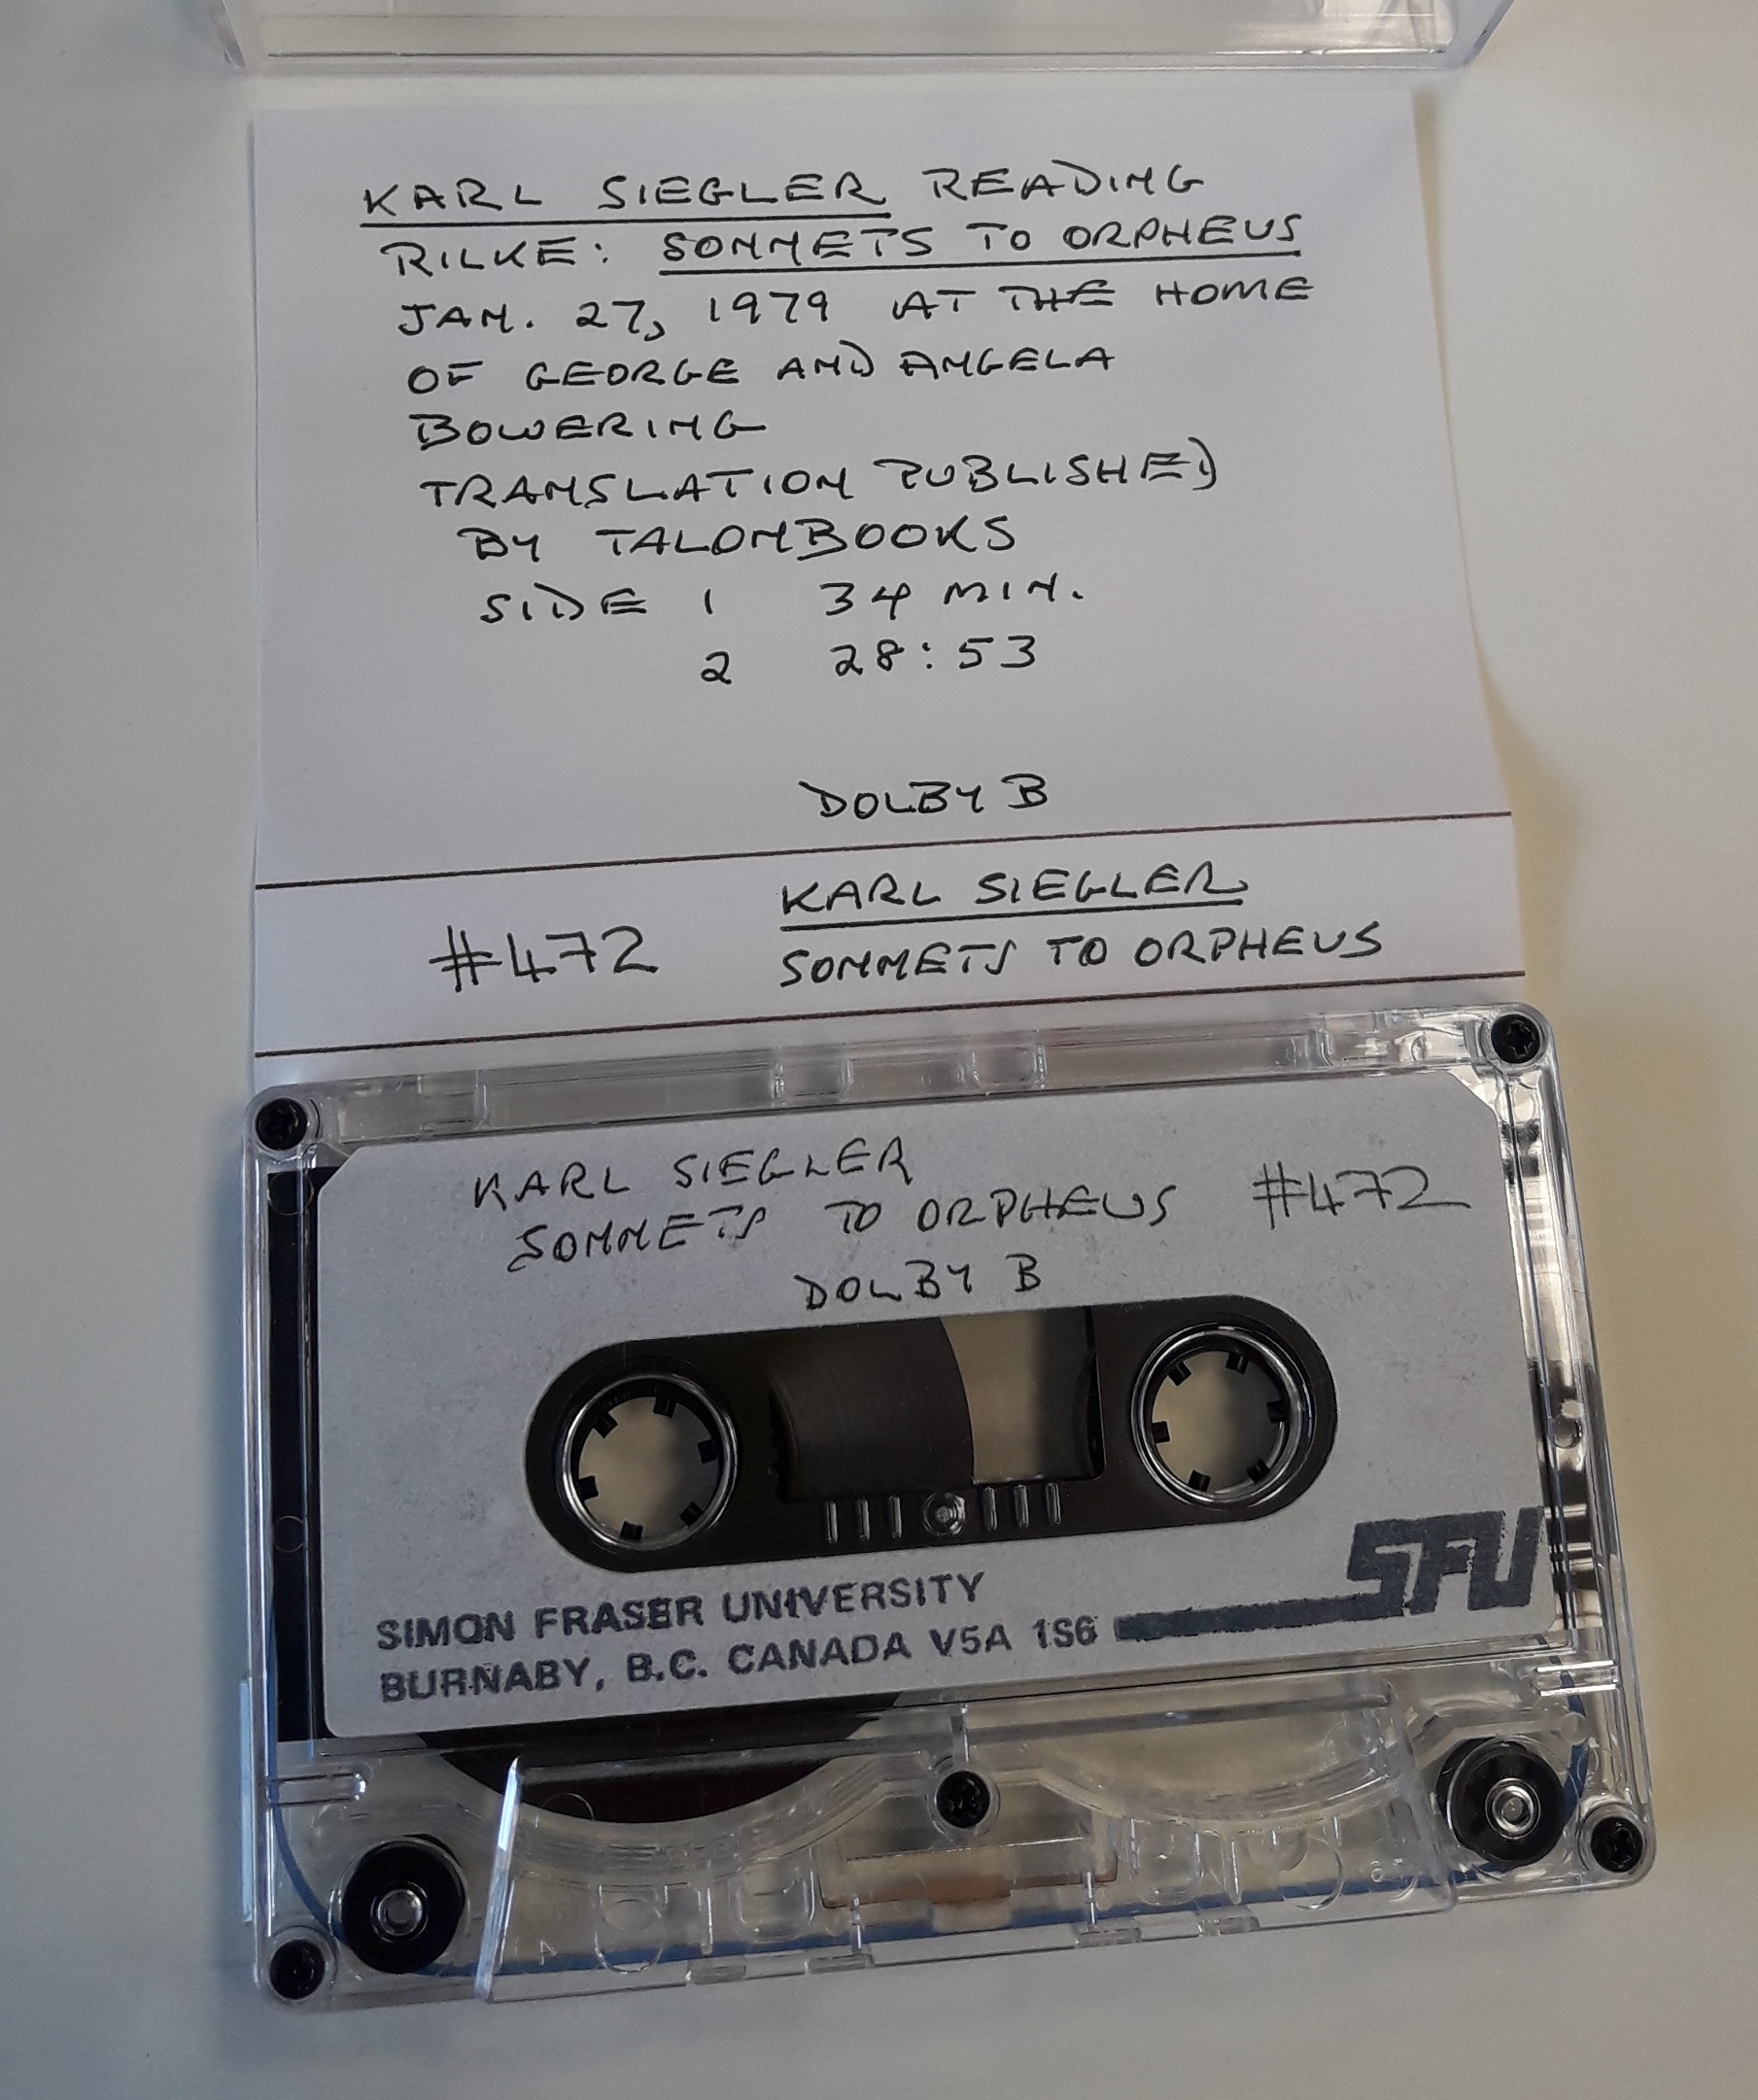 KARL SIEGLER READING
RILKE: SONNETS TO ORPHEUS
JAN. 27, 1979 AT THE HOME
OF GEORGE AND ANGELA
BOWERING
TRANSLATION PUBLISHED
BY TALONBOOKS
SIDE 1 34 MIN.
2 28:53
DOLBY B
KARL SIEGLER
#472 SONNETS TO ORPHEUS
KARL SIEGLER
SONNETS TO ORPHEUS #472
DOLBY B
SFU
SIMON FRASER UNIVERSITY
BURNABY, B.C. CANADA V5A 1S6